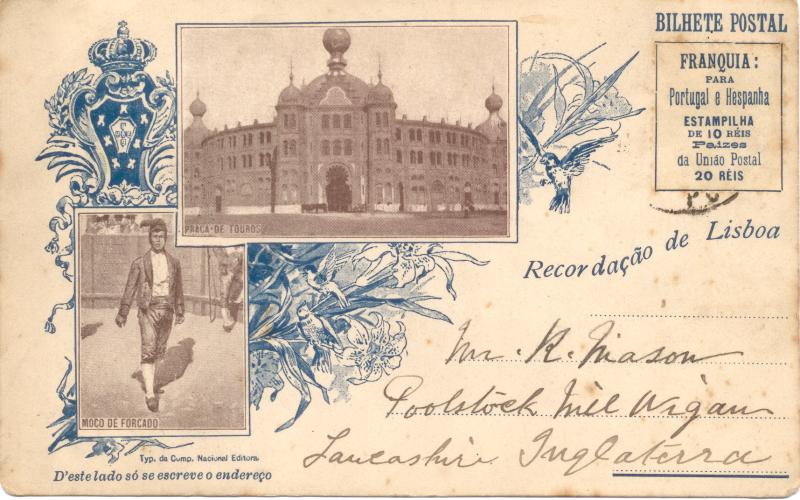 BILHETE POSTAL
FRANQUIA:
PARA
Portugal e Hespanha
ESTAMPILHA
DE 10 RÉIS
Paizes
da União Postal
20 RÉIS
PRAÇA DE TOUROS
Recordação de Lisboa
MOÇO DE FORCADO
Mr. R. Mason
Poolstock Mill Wigan
Lancashire Inglaterra
Typ. da Comp. Nacional Editora.
D'este lado só se escreve o endereço